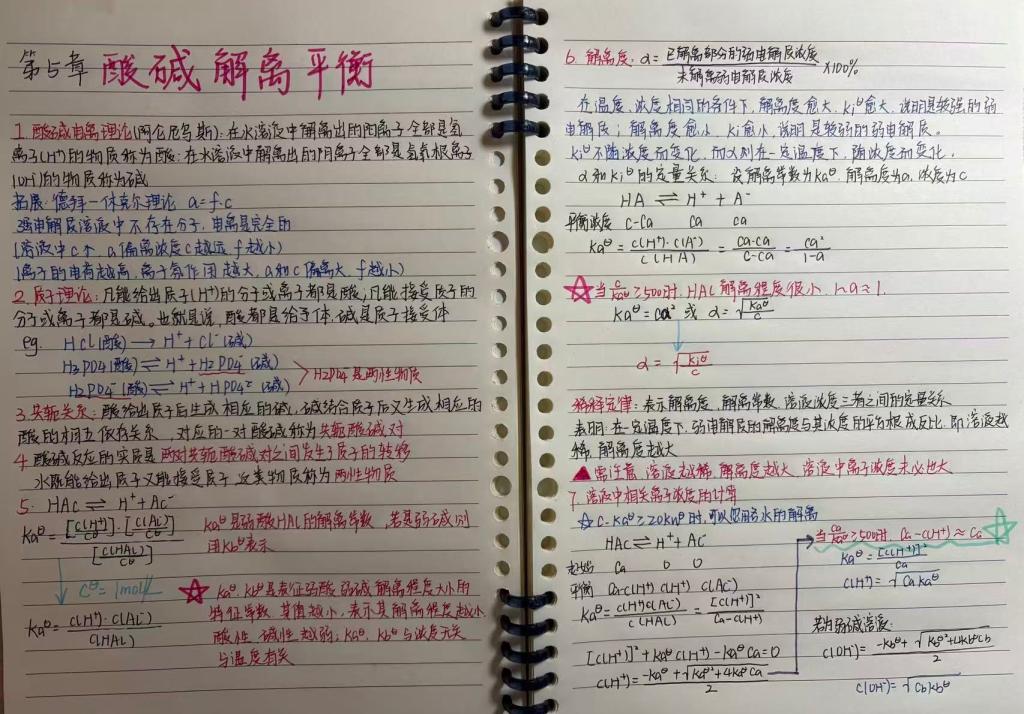 第5章 酸碱解离平衡
1. 酸碱电离理论(阿仑尼乌斯):在水溶液中解离出的阳离子全部是氢
离子(H⁺)的物质称为酸;在水溶液中解离出的阴离子全部是氢氧根离子
(OH⁻)的物质称为碱
拓展:德拜—休克尔理论 a=f·c
强电解质溶液中不存在分子,电离是完全的
(溶液中c↑ a偏离浓度c越远 f越小)
(离子的电荷越高,离子氛作用越大,a和c偏离大,f越小)
2. 质子理论:凡能给出质子(H⁺)的分子或离子都是酸,凡能接受质子的
分子或离子都是碱。也就是说,酸都是给予体,碱是质子接受体
eg. HCl(酸) → H⁺+Cl⁻(碱)
H₃PO₄(酸) ⇌ H⁺+H₂PO₄⁻(碱)
H₂PO₄⁻(酸) ⇌ H⁺+HPO₄²⁻(碱)
H₂PO₄⁻是两性物质
3. 共轭关系:酸给出质子后生成相应的碱,碱结合质子后又生成相应的
酸的相互依存关系,对应的一对酸碱称为共轭酸碱对
4. 酸碱反应的实质是两对共轭酸碱对之间发生了质子的转移
水既能给出质子又能接受质子 这类物质称为两性物质
5. HAc ⇌ H⁺+Ac⁻
Ka^θ = [c(H⁺)/c^θ]·[c(Ac⁻)/c^θ] / [c(HAc)/c^θ]
Ka^θ是弱酸HAc的解离常数,若是弱碱则
用Kb^θ表示
C^θ=1mol/L
Ka^θ = c(H⁺)·c(Ac⁻) / c(HAc)
☆ Ka^θ、Kb^θ是表征弱酸 弱碱 解离程度大小的
特征常数 其值越小,表示其解离程度越小
酸性 碱性越弱;Ka^θ、Kb^θ与浓度无关
与温度有关
6. 解离度 α= 已解离部分的弱电解质浓度 / 未解离弱电解质浓度 ×100%
在温度、浓度相同的条件下,解离度愈大,Ki^θ愈大,说明是较强的弱
电解质;解离度愈小,Ki愈小,说明是较弱的弱电解质。
Ki^θ不随浓度而变化,而α则在一定温度下,随浓度而变化。
α和Ki^θ的定量关系:设解离常数为Ka^θ,解离度为α,浓度为c
HA ⇌ H⁺ + A⁻
平衡浓度 c-cα cα cα
Ka^θ = c(H⁺)·c(A⁻) / c(HA) = cα·cα / c-cα = cα² / 1-α
☆当 c/Ka^θ ≥500时,HAc解离程度很小,1-α≈1.
Ka^θ=cα² 或 α=√(Ka^θ/c)
α = √(Ki^θ/c)
稀释定律:表示解离度、解离常数、溶液浓度三者之间的定量关系
表明:在一定温度下,弱电解质的解离度与其浓度的平方根成反比,即溶液越
稀,解离度越大
▲需注意,溶液越稀,解离度越大,溶液中离子浓度未必也大
7. 溶液中相关离子浓度的计算
☆ C·Ka^θ≥20Kw^θ时,可以忽略水的解离
HAc ⇌ H⁺+ Ac⁻
起始 Ca 0 0
平衡 Ca-c(H⁺) c(H⁺) c(Ac⁻)
Ka^θ = c(H⁺)c(Ac⁻) / c(HAc) = [c(H⁺)]² / Ca-c(H⁺)
[c(H⁺)]²+Ka^θc(H⁺)-Ka^θCa=0
c(H⁺)= -Ka^θ+√(Ka^θ²+4Ka^θCa) / 2
当 Ca/Ka^θ ≥500时, Ca-c(H⁺)≈Ca ☆
Ka^θ= [c(H⁺)]² / Ca
c(H⁺)=√(CaKa^θ)
若为弱碱溶液:
c(OH⁻)= -Kb^θ+√(Kb^θ²+4Kb^θCb) / 2
c(OH⁻)=√(CbKb^θ)